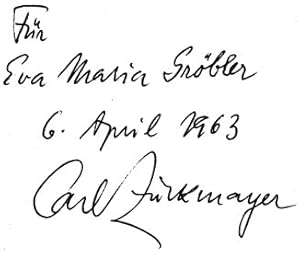 Für
Eva Maria Gröbler
6. April 1963
Carl Zuckmayer